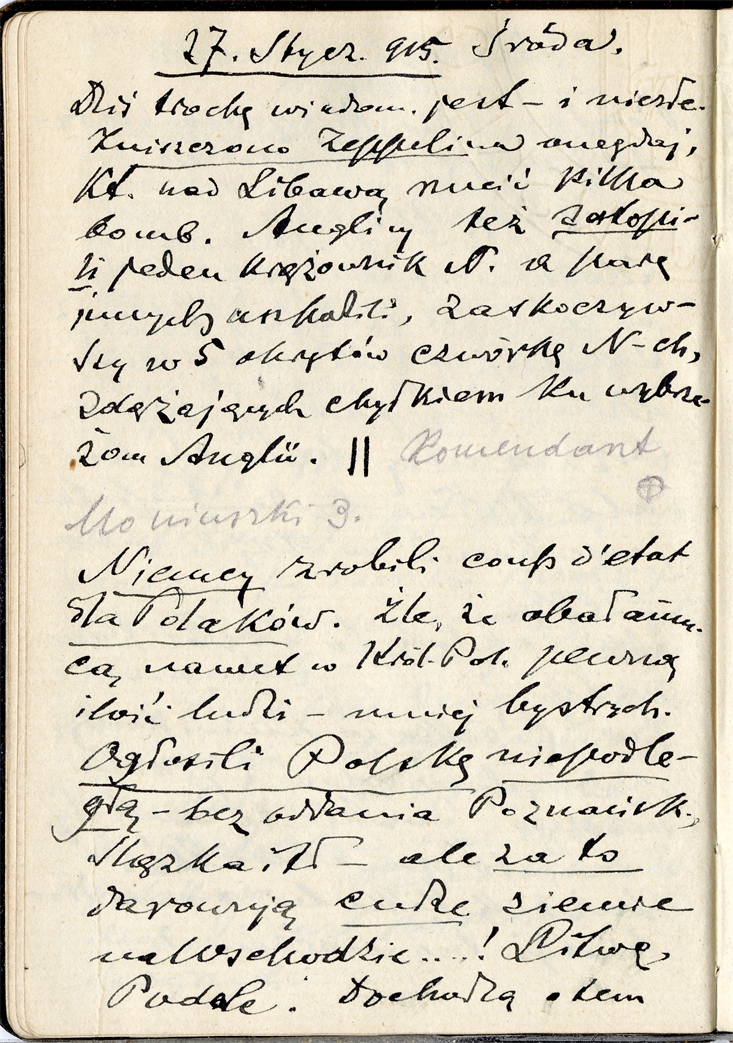 27. Stycz. 915. Środa.
Dziś trochę wiadom. jest – i niezłe.
Zniszczono Zeppelina onegdaj,
Kt. nad Libawą rzucił kilka
bomb. Anglicy też zatopi-
li jeden krążownik N. a parę
innych uszkodzili, zaskoczyw-
szy w 5 okrętów czwórkę N-ch,
zdążających chyłkiem ku wybrze-
żom Anglii. ||  Komendant
Moniuszki 3.
Niemcy zrobili coup d'etat
dla Polaków. Źle, że obałamu-
cą nawet w Król. Pol. pewną
ilość ludzi – mniej bystrych.
Ogłosili Polskę niepodle-
głą – bez oddania Poznańsk.,
Śląska itd – ale za to
darowują cudze ziemie
na Wschodzie....! Litwę,
Podole. Dochodzą o tem